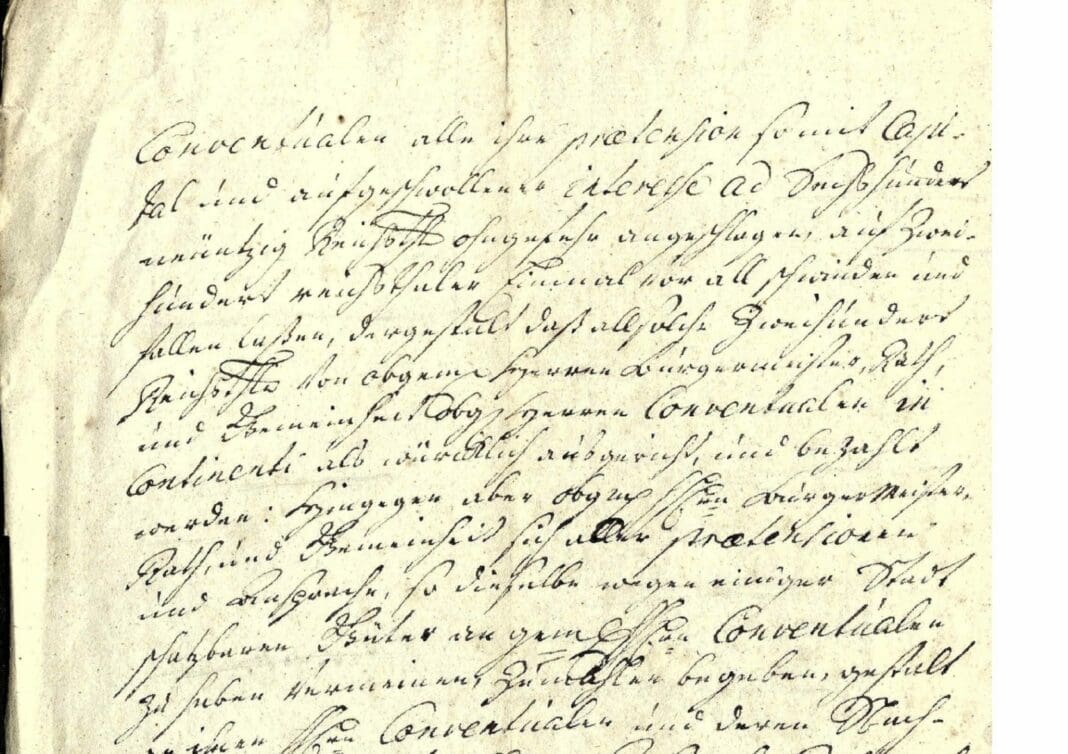 Conventualen alle ihre prætension so mit Capi-
tal und aufgeschwollener interesse ad Sechshundert
neüntzig Reichsthlr ohngefehr angeschlagen, auf Zwei-
hundert reichsthaler Einmal vor all schwinden und
fallen laßen, dergestalt daß allsolche Zweihundert
Reichsthlr von obgem Herren Bürgermeister, Rath,
und Gemeinheit obg Herren Conventualen in
Continenti also würcklich ausgericht, und bezahlt
werden: Hingegen aber obgem HHren Bürgermeister,
Rath, und Gemeinheit sich aller prætensionen
und Ansprache, so dieselbe wegen einiger Stadt
schatzbaren Güter an gem HHren Conventualen
zu haben vermeinen, Zumahlen begeben, gestalt
ihnen HHren Conventualen und deren Nach-